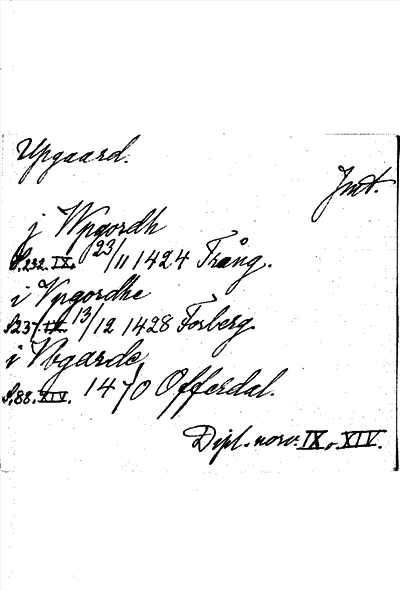 Upgaard.
Jmt.
j Wpgordh
S. 232. IX. 23/11 1424 Trång.
i Vpgordhe
S 237. IX. 13/12 1428 Forberg
i Vbgarde
S. 88. XIV. 1470 Offerdal.
Dipl. norv. IX o XIV.